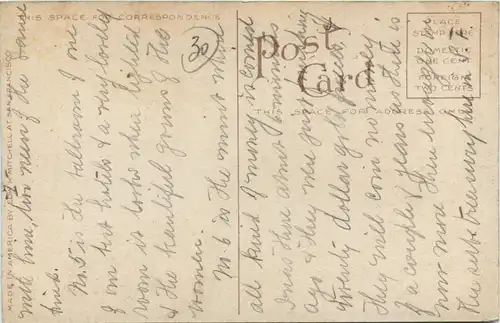 THIS SPACE FOR CORRESPONDENCE
30
Post
Card
PLACE
STAMP HERE
DOMESTIC
ONE CENT
FOREIGN
TWO CENTS
THIS SPACE FOR ADDRESS ONLY
MADE IN AMERICA BY EDW. H. MITCHELL AT SAN FRANCISCO
with mine, two men of the same
time.
No. 5 is the ballroom of one
of our best hotels & a very lovely
room it looks when lighted
& the beautiful gowns of the
women.
No. 6 is the mint where
all kind of money is coined
I was there about
ago & they were just
twenty dollar gold pieces,
They will coin no money
for a couple of years as there is
now more than necessary in
the sub treasury